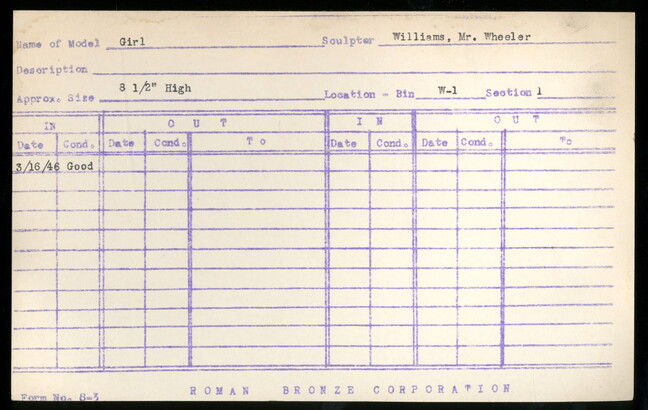 Name of Model Girl Sculptor Williams, Mr. Wheeler
Description
Approx. Size 8 1/2" High Location - Bin W-1 Section 1
IN OUT IN OUT
Date Cond. Date Cond. To Date Cond. Date Cond. To
3/16/46 Good
Form No. 8-3 ROMAN BRONZE CORPORATION